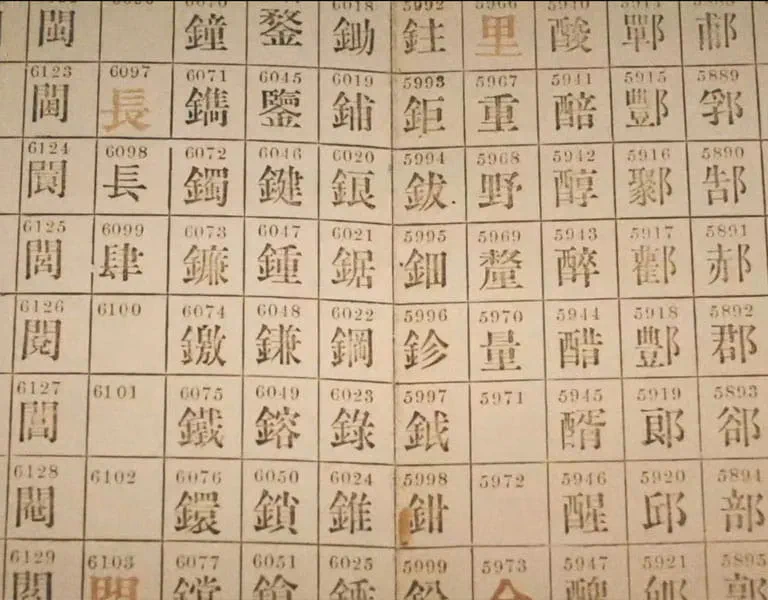 閩 鐘 鍪 鋤 鉒 里 酸 鄲
6123 6097 6071 6045 6019 5993 5967 5941 5915 5889
長 鐫 鑒 鋪 鉅 重 醅 酆 郛
6124 6098 6072 6046 6020 5994 5968 5942 5916 5890
長 鐲 鍵 鋃 鈸 野 醇 鄹 郜
6125 6099 6073 6047 6021 5995 5969 5943 5917 5891
肆 鐮 鍾 鋸 鈿 釐 醉 酄 郝
6126 6100 6074 6048 6022 5996 5970 5944 5918 5892
閱 鎌 鋼 鉁 量 醋 酆 郡
6127 6101 6075 6049 6023 5997 5971 5945 5919 5893
閭 鐵 鎔 錄 鉞 醑 郎 郤
6128 6102 6076 6050 6024 5998 5972 5946 5920 5894
閹 鐶 鎖 錐 鉗 醒 邱 部
6129 6103 6077 6051 6025 5999 5973 5947 5921 5895
閻 門 鐺 鎗 錘 鉛 金 郭